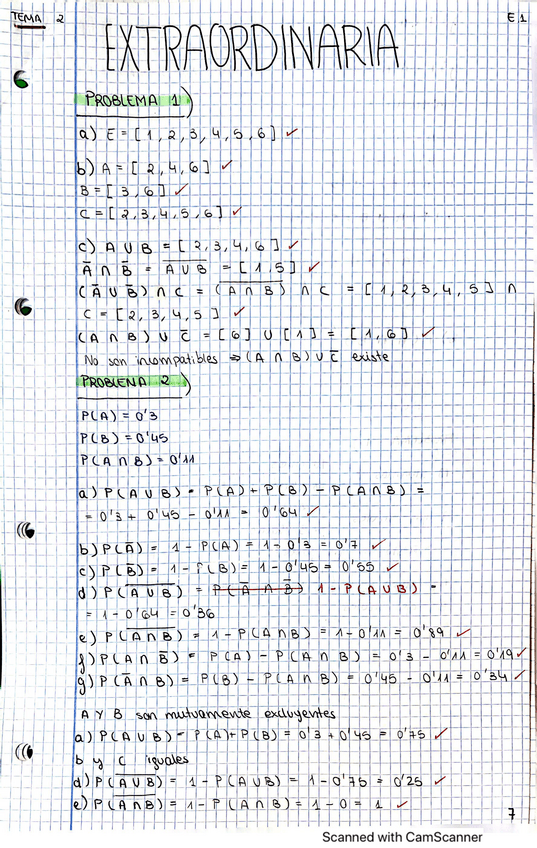 TEMA 2
E1
EXTRAORDINARIA
PROBLEMA 1)
a) E = [1, 2, 3, 4, 5, 6] ✓
b) A = [2, 4, 6] ✓
B = [3, 6] ✓
C = [2, 3, 4, 5, 6] ✓
c) A ∪ B = [2, 3, 4, 6] ✓
A̅ ∩ B̅ = \overline{A ∪ B} = [1, 5] ✓
(A̅ ∪ B̅) ∩ C = (\overline{A ∩ B}) ∩ C = [1, 2, 3, 4, 5] ∩
C = [2, 3, 4, 5] ✓
(A ∩ B) ∪ C̅ = [6] ∪ [1] = [1, 6] ✓
No son incompatibles ⇒ (A ∩ B) ∪ C̅ existe
PROBLEMA 2)
P(A) = 0'3
P(B) = 0'45
P(A ∩ B) = 0'11
a) P(A ∪ B) = P(A) + P(B) - P(A ∩ B) =
= 0'3 + 0'45 - 0'11 = 0'64 ✓
b) P(A̅) = 1 - P(A) = 1 - 0'3 = 0'7 ✓
c) P(B̅) = 1 - P(B) = 1 - 0'45 = 0'55 ✓
d) P(\overline{A ∪ B}) = P(A̅ ∩ B̅) 1 - P(A ∪ B) =
= 1 - 0'64 = 0'36
e) P(\overline{A ∩ B}) = 1 - P(A ∩ B) = 1 - 0'11 = 0'89 ✓
f) P(A ∩ B̅) = P(A) - P(A ∩ B) = 0'3 - 0'11 = 0'19 ✓
g) P(A̅ ∩ B) = P(B) - P(A ∩ B) = 0'45 - 0'11 = 0'34 ✓
A Y B son mutuamente excluyentes
a) P(A ∪ B) = P(A) + P(B) = 0'3 + 0'45 = 0'75 ✓
b y c iguales
d) P(\overline{A ∪ B}) = 1 - P(A ∪ B) = 1 - 0'75 = 0'25 ✓
e) P(\overline{A ∩ B}) = 1 - P(A ∩ B) = 1 - 0 = 1 ✓
7
Scanned with CamScanner